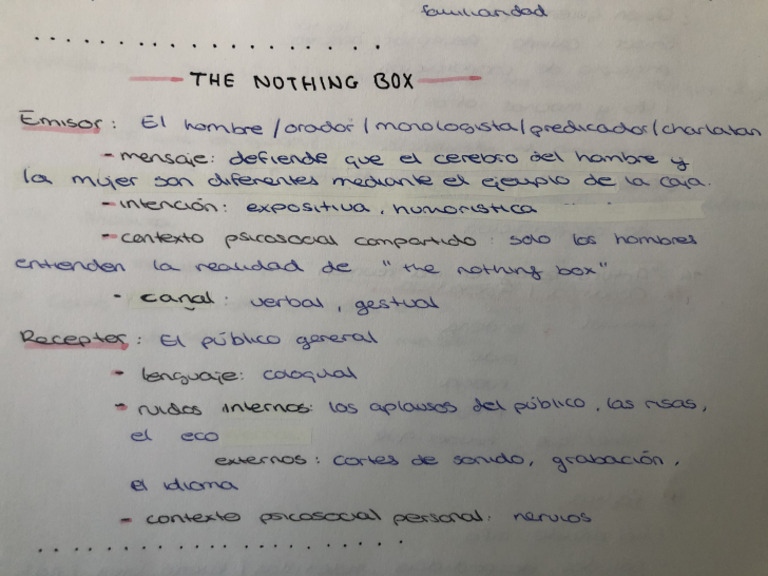 familiaridad
THE NOTHING BOX
Emisor: El hombre/orador/monologista/predicador/charlatan
- mensaje: defiende que el cerebro del hombre y
la mujer son diferentes mediante el ejemplo de la caja.
- intención: expositiva, humoristica
- contexto psicosocial compartido: solo los hombres
entienden la realidad de "the nothing box"
- canal: verbal, gestual
Receptor: El público general
- lenguaje: coloquial
- ruidos internos: los aplausos del público, las risas,
el eco
externos: cortes de sonido, grabación,
el idioma
- contexto psicosocial personal: nervios